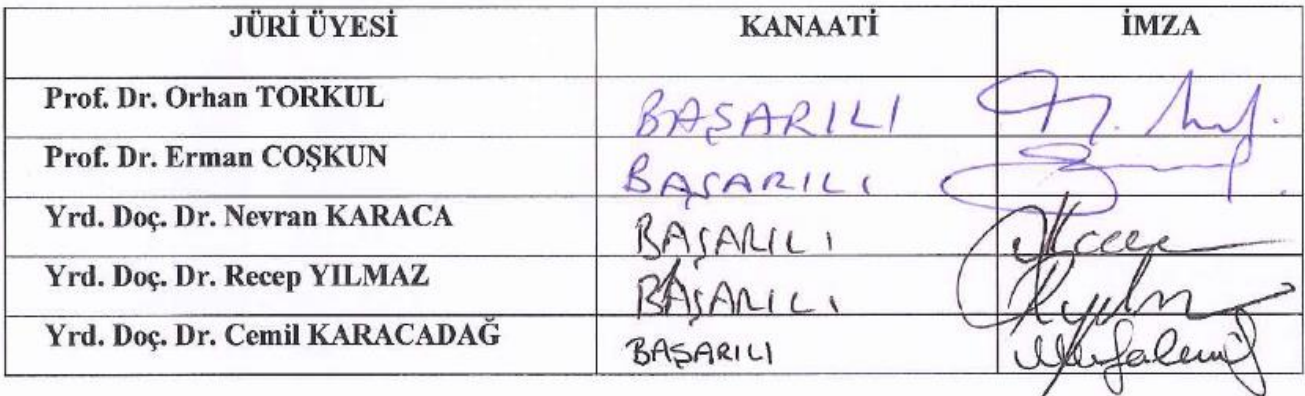 JÜRİ ÜYESİ KANAATİ İMZA
Prof. Dr. Orhan TORKUL BAŞARILI
Prof. Dr. Erman COŞKUN BAŞARILI
Yrd. Doç. Dr. Nevran KARACA BAŞARILI
Yrd. Doç. Dr. Recep YILMAZ BAŞARILI
Yrd. Doç. Dr. Cemil KARACADAĞ BAŞARILI